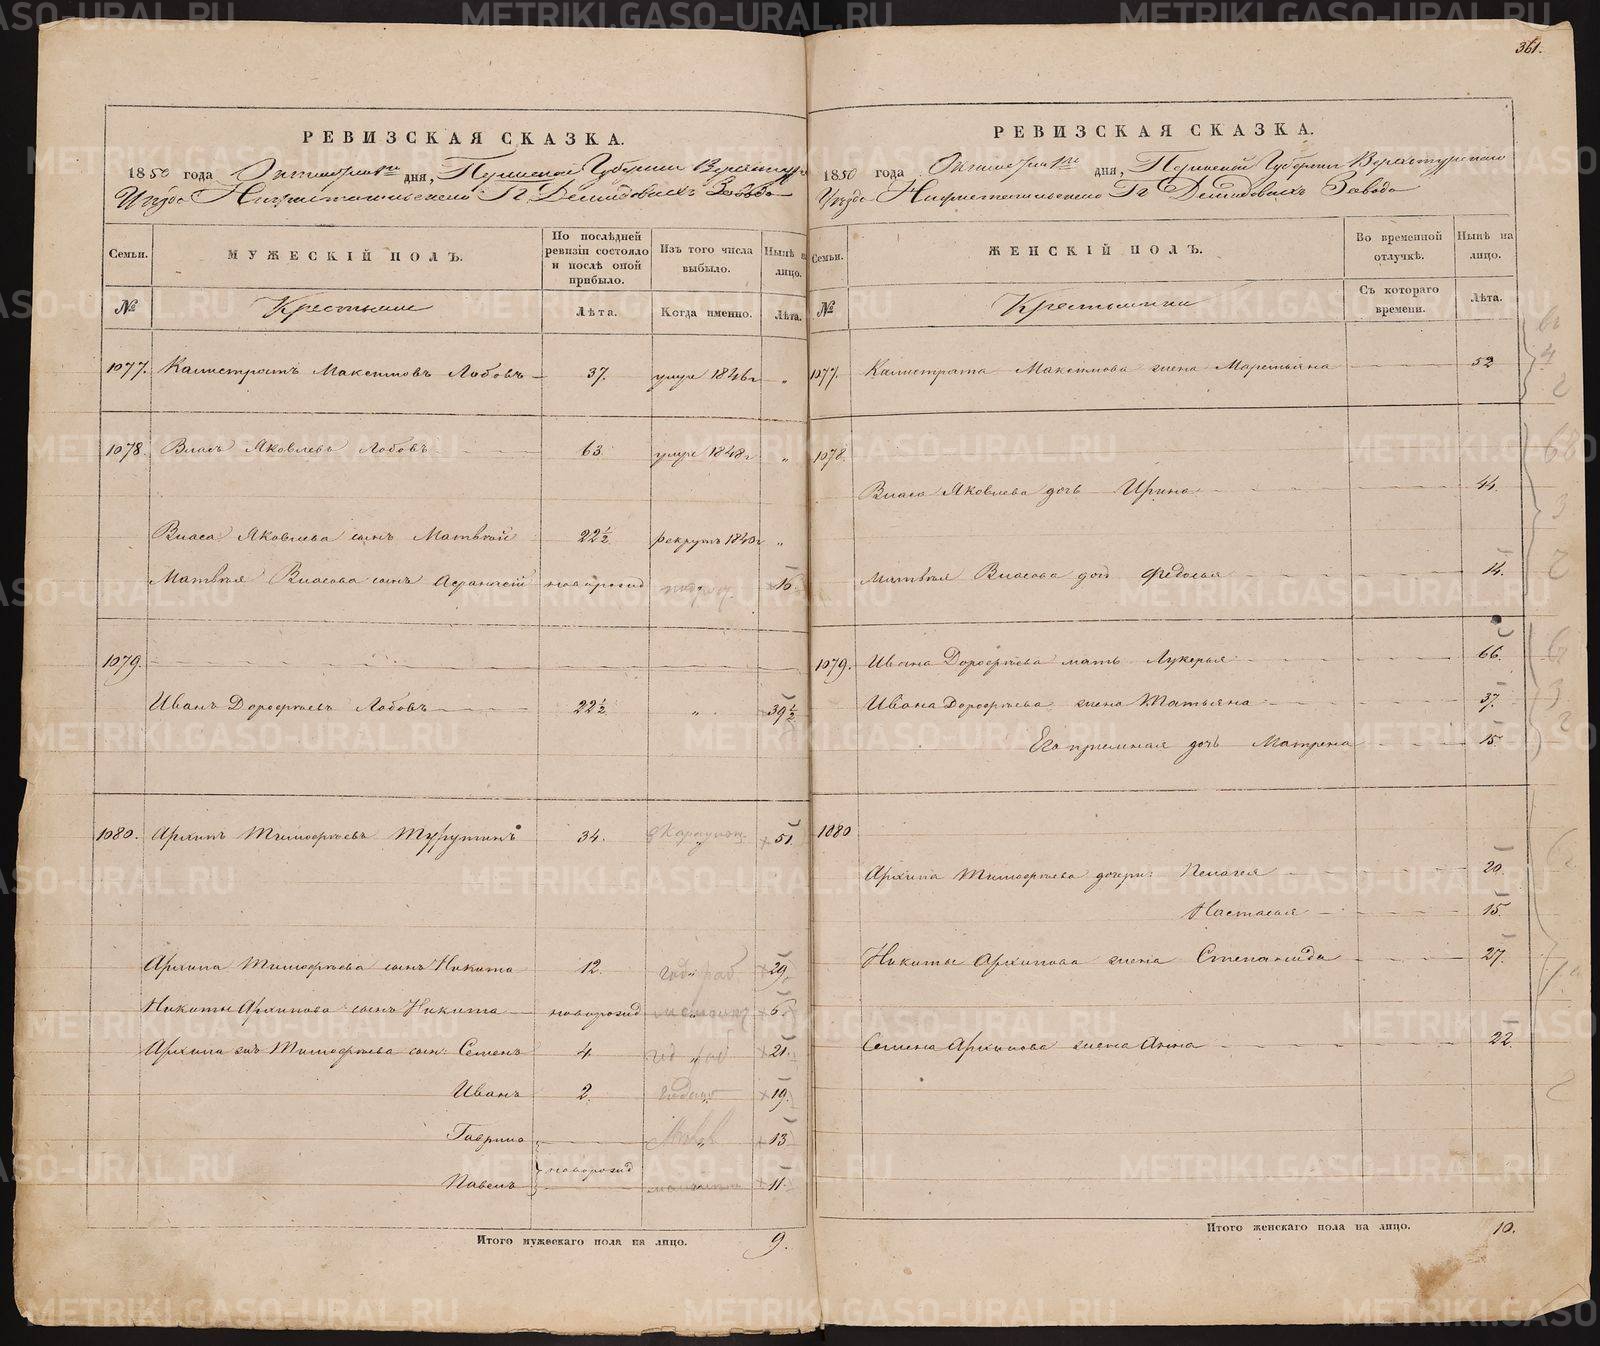 361.
РЕВИЗСКАЯ СКАЗКА.
1850 года Октября дня, Пермской Губернии Верхотурскаго
Уезда Нижнетагильскаго Гг Демидовыхъ Завода
Семьи.
МУЖЕСКІЙ ПОЛЪ.
По послѣдней ревизіи состояло и послѣ оной прибыло.
Изъ того числа выбыло.
Нынѣ на лицо.
№
Крестьяне
Лѣта.
Когда именно.
Лѣта.
1077. Калистратъ Максимовъ Лобовъ 37. умре 1846 г „
1078. Власъ Яковлевъ Лобовъ 63. умре 1848 г „
Власа Яковлева сынъ Матвѣй 22½ рекрутъ 1840 г „
Матвѣя Власова сынъ Афанасій новорожд 16.
1079.
Иванъ Дорофѣевъ Лобовъ 22½ „ 39½
1080. Архипъ Тимофѣевъ 34. „ 51.
Архипа Тимофѣева сынъ Никита 12. „ 29.
Никиты Архипова сынъ Никита новорожд „ 6.
Архипа Тимофѣева сын: Семенъ 4. „ 21.
Иванъ 2. „ 19.
Гаврило „ 13
новорожд
Павелъ 11.
Итого мужескаго пола на лицо. 9.
РЕВИЗСКАЯ СКАЗКА.
1850 года Октября дня, Пермской Губерніи Верхотурскаго
Уезда Нижнетагильскаго Гг Демидовыхъ Завода
Семьи.
ЖЕНСКІЙ ПОЛЪ.
Во временной отлучкѣ.
Нынѣ на лицо.
№
Крестьянки
Съ котораго времени.
Лѣта.
1077. Калистрата Максимова жена Маремьяна 52
1078.
Власа Яковлева дочь Ирина 44.
Матвѣя Власова дочь Федосья 14.
1079. Ивана Дорофѣева мать Лукерья 66.
Ивана Дорофѣева жена Татьяна 37.
Его приемная дочь Матрена 15.
1080
Архипа Тимофѣева дочери: Пелагея 20.
Настасья 15.
Никиты Архипова жена Степанида 27.
Семена Архипова жена Анна 22.
Итого женскаго пола на лицо. 10.
METRIKI.GASO-URAL.RU